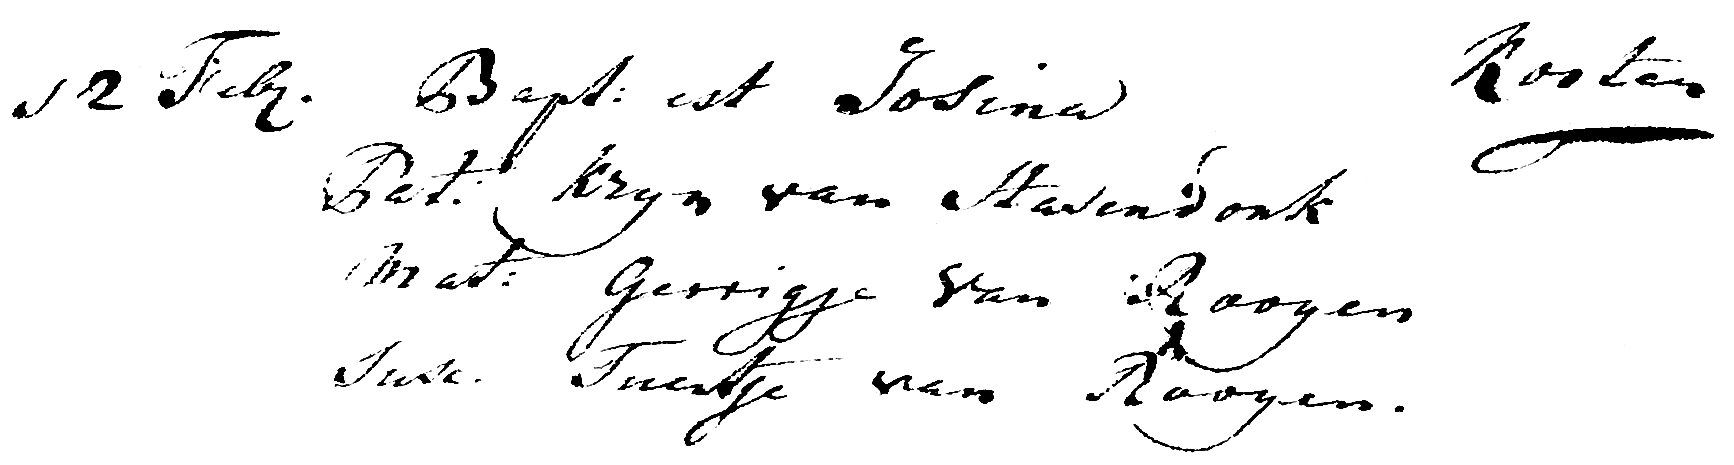 12 Feb. Bapt: est Josina Kooten
Pat: Kryn van Stavendonk
Mat: Gerrigje van Rooyen
Susc. Tuentje van Rooyen.